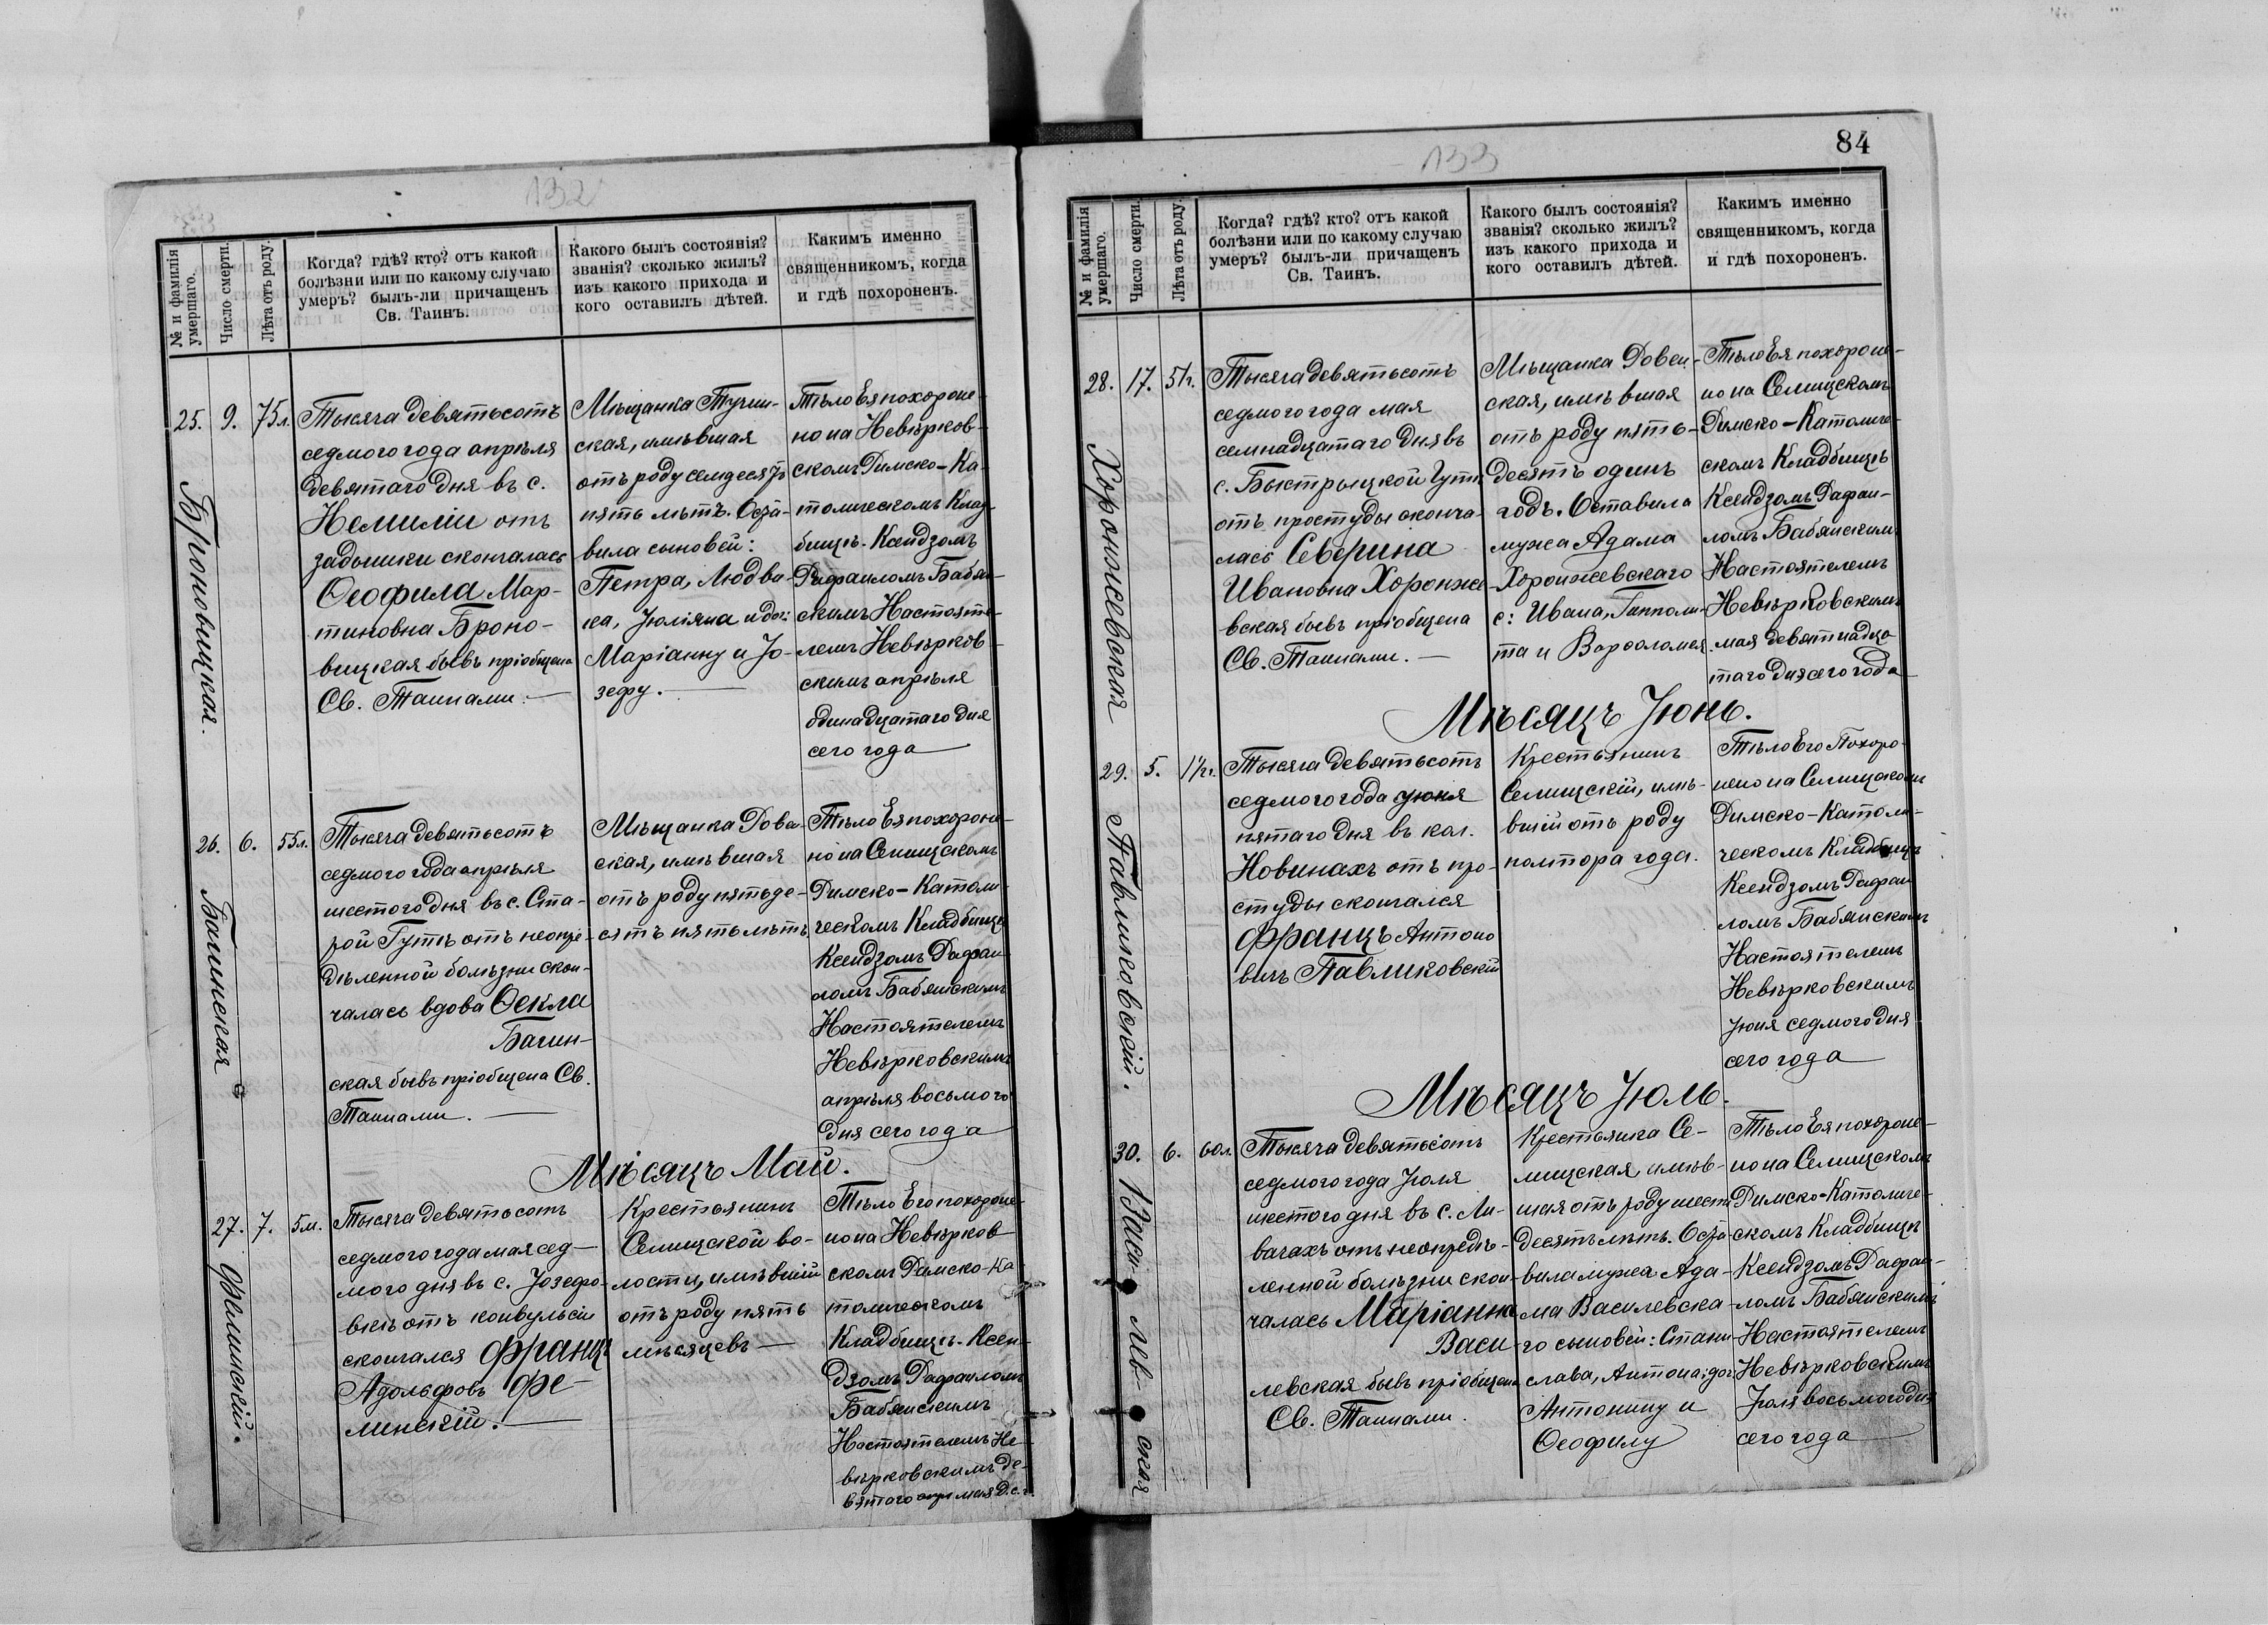 132
№ и фамилія
умершаго.
Число смерти.
Лѣта отъ роду.
Когда? гдѣ? кто? отъ какой
болѣзни или по какому случаю
умеръ? былъ-ли причащенъ
Св. Таинъ.
Какого былъ состоянія?
званія? сколько жилъ?
изъ какого прихода и
кого оставилъ дѣтей.
Какимъ именно
священникомъ, когда
и гдѣ похороненъ.
25.
Броновицкая.
9.
75л.
Тысяча девятьсотъ
седмого года апрѣля
девятаго дня въ с.
Немиліи отъ
задышки скончалась
Ѳеофила Мар-
тиновна Броно-
вицкая бывъ пріобщена
Св. Таинами. —
Мѣщанка Тучин-
ская, имѣвшая
отъ роду семдесятъ
пять лѣтъ. Оста-
вила сыновей:
Петра, Людви-
ка, Юліяна и доч:
Маріанну и Іо-
зефу. —
Тѣло Ея похороне-
но на Невѣрков-
скомъ Римско-Ка-
толическомъ Клад-
бищѣ. Ксендзомъ
Рафаиломъ Бабян-
скимъ Настояте-
лемъ Невѣрков-
скимъ апрѣля
одинадцатаго дня
сего года
26.
Багинская
6.
55л.
Тысяча девятьсотъ
седмого года апрѣля
шестого дня въ с. Ста-
рой Гутѣ отъ неопре-
дѣленной болѣзни скон-
чалась вдова Ѳекла
Багин-
ская бывъ пріобщена Св.
Таинами. —
Мѣщанка Дова-
ская, имѣвшая
отъ роду пятьде-
сятъ пять лѣтъ.
Тѣло Ея похороне-
но на Селищскомъ
Римско-Католи-
ческомъ Кладбищѣ
Ксендзомъ Рафаи-
ломъ Бабянскимъ
Настоятелемъ
Невѣрковскимъ
апрѣля восьмого
дня сего года
Мѣсяцъ Май.
27.
Фелинскій.
7.
5м.
Тысяча девятьсотъ
седмого года мая сед-
мого дня въ с. Іозефо-
вкѣ отъ конвульсіи
скончался Францъ
Адольфовъ Фе-
линскій. —
Крестьянинъ
Селищской во-
лости, имѣвшій
отъ роду пять
мѣсяцевъ —
Тѣло Его похороне-
но на Невѣрков-
скомъ Римско-Ка
толическомъ
Кладбищѣ. Ксен-
дзомъ Рафаиломъ
Бабянскимъ
Настоятелемъ Не-
вѣрковскимъ де-
вятого мая д.с.г.
133
84
№ и фамилія
умершаго.
Число смерти.
Лѣта отъ роду.
Когда? гдѣ? кто? отъ какой
болѣзни или по какому случаю
умеръ? былъ-ли причащенъ
Св. Таинъ.
Какого былъ состоянія?
званія? сколько жилъ?
изъ какого прихода и
кого оставилъ дѣтей.
Какимъ именно
священникомъ, когда
и гдѣ похороненъ.
28.
Хоронжевская
17.
51г.
Тысяча девятьсотъ
седмого года мая
семнадцатаго дня въ
с. Быстрыцкой Гутѣ
отъ простуды сконча-
лась Северина
Ивановна Хоронже-
вская бывъ пріобщена
Св. Таинами. —
Мѣщанка Довен-
ская, имѣвшая
отъ роду пять-
десятъ одинъ
годъ. Оставила
мужа Адама
Хоронжевскаго
с: Ивана, Гипполи-
та и Варѳоломея.
Тѣло Ея похороне-
но на Селищскомъ
Римско-Католиче-
скомъ Кладбищѣ
Ксендзомъ Рафаи-
ломъ Бабянскимъ
Настоятелемъ
Невѣрковскимъ
мая девятнадца
таго дня сего года
Мѣсяцъ Іюнь.
29.
Павликовскій.
5.
1½г.
Тысяча девятьсотъ
седмого года іюня
пятаго дня въ кол.
Новинахъ отъ про-
студы скончался
Францъ Антоно
вичъ Павликовскій
Крестьянинъ
Селищскій, имѣ-
вшій отъ роду
полтора года.
Тѣло Его Похоро-
нено на Селищскомъ
Римско-Католи-
ческомъ Кладбищѣ
Ксендзомъ Рафаи
ломъ Бабянскимъ
Настоятелемъ
Невѣрковскимъ
Іюня седмого дня
сего года
Мѣсяцъ Іюль.
30.
Васи- лев- ская
6.
60л.
Тысяча девятьсотъ
седмого года Іюля
шестого дня въ с. Ли-
вачахъ отъ неопредѣ-
ленной болѣзни скон-
чалась Маріанна
Васи-
левская бывъ пріобщена
Св. Таинами.
Крестьянка Се-
лищская, имѣв-
шая отъ роду шесть
десятъ лѣтъ. Оста-
вила мужа Ада-
ма Василевска-
го сыновей: Стани-
слава, Антона: доч:
Антонину и
Ѳеофилу
Тѣло Ея похороне-
но на Селищскомъ
Римско-Католиче-
скомъ Кладбищѣ
Ксендзомъ Рафаи-
ломъ Бабянскимъ
Настоятелемъ
Невѣрковскимъ
Іюля восьмого дня
сего года